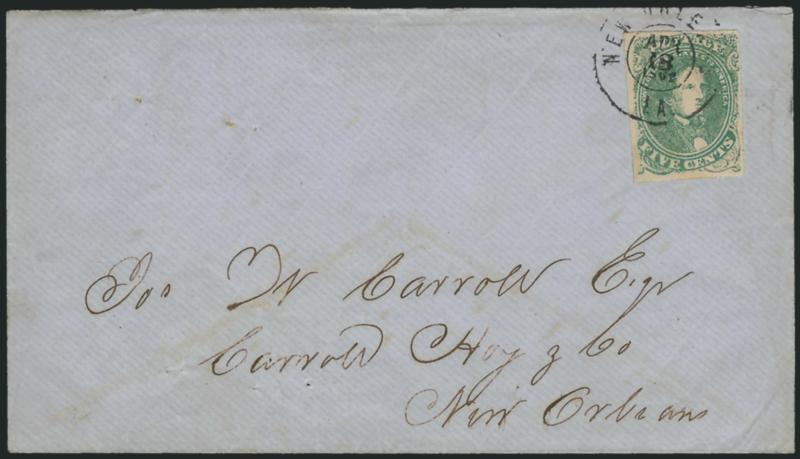 NEW ORLE
APR
18
LA
FIVE CENTS
Jos W Carroll Esqr
Carroll Hoy & Co
New Orleans